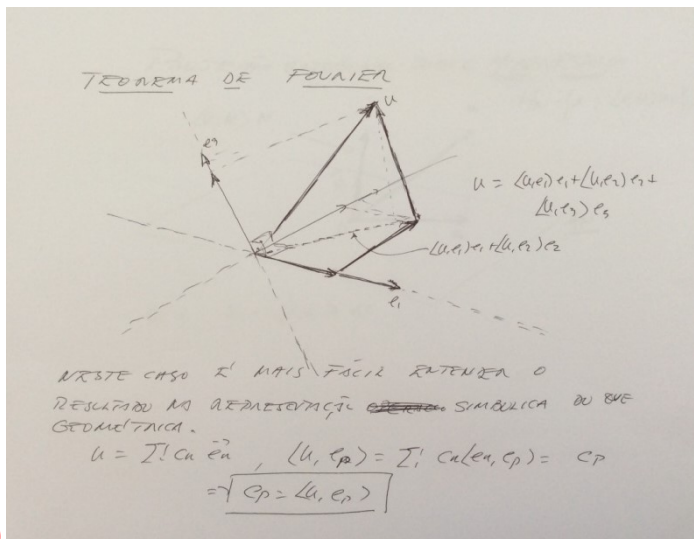 TEOREMA DE FOURIER
u
e3
u = ⟨u,e1⟩e1+⟨u,e2⟩e2+
⟨u,e3⟩e3
⟨u,e1⟩e1+⟨u,e2⟩e2
e1
NESTE CASO É MAIS FÁCIL ENTENDER O
RESULTADO NA REPRESENTAÇÃO SIMBÓLICA DO QUE
GEOMÉTRICA.
u = Σ Cn en , ⟨u, ep⟩ = Σ Cn⟨en, ep⟩ = Cp
⇒ Cp = ⟨u, ep⟩